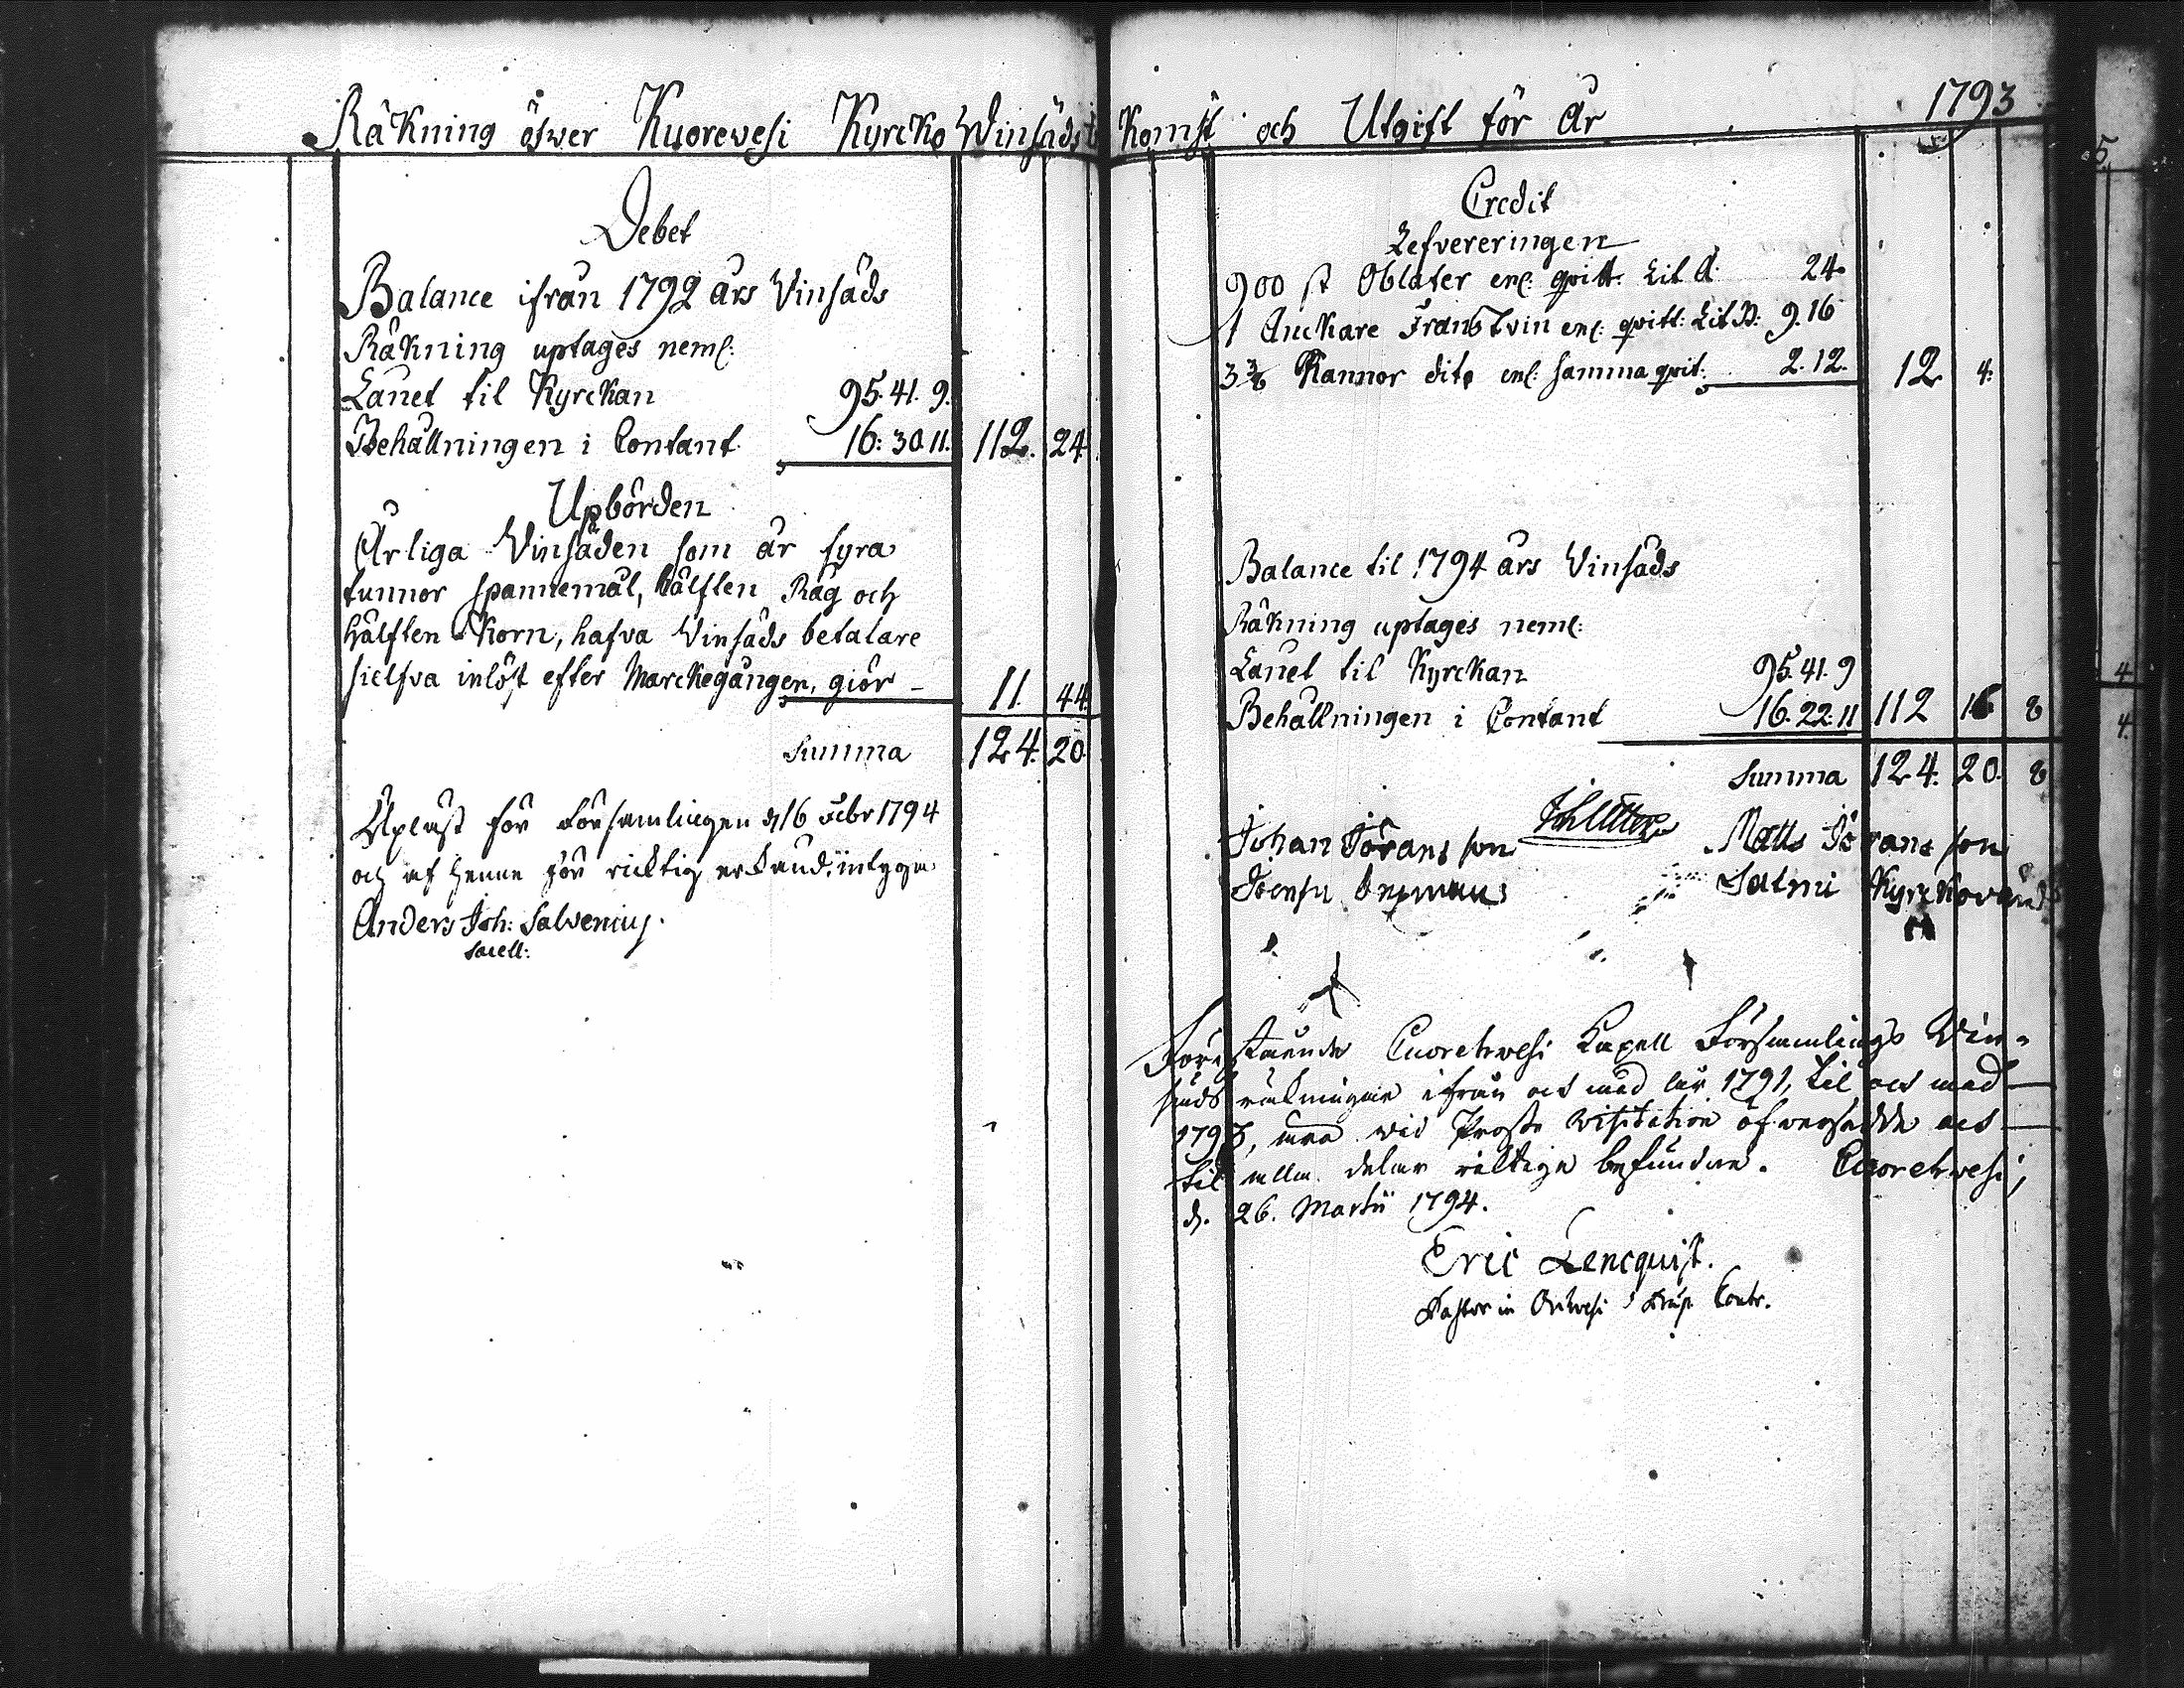 Räkning öfwer Kuorevesi Kyrcko Vinsäds Komst och Utgift för År 1793
Debet
Balance ifrån 1792 års Vinsäds
Räkning uptages neml:
Lånet til Kyrckan 95. 41. 9.
Behållningen i Contant 16: 30. 11. 112. 24.
Upbörden
Årliga Vinsäden som är fyra
tunnor spannemål, hälften Råg och
hälften Korn, hafva Vinsäds betalare
sielfva inlöst efter Marckegången, giör - 11. 44.
Summa 124. 20.
Upläst för Församlingen d 16 Febr 1794
och af henne förricktig erkänd, intygar
Anders Joh: Salvenius.
Sacell:
Credit
Lefvereringen
900 st Oblater enl: qvitt. Lit A: 24.
1 Anckare Franskt vin enl: qvitt: Lit B: 9. 16
3 3/8 Kannor dito enl: samma qvit: 2. 12. 12 4.
Balance til 1794 års Vinsäds
Räkning uptages neml:
Lånet til Kyrckan 95. 41. 9
Behållningen i Contant 16. 22: 11 112 16 8
Summa 124. 20. 8
Johan Jörans son Matts Jörans son
Salmi Kyrckovärd
Förestående Cuorehwesi Capell Församlings Win-
säds räkningar ifrån och med år 1791, til och med
1793, äro wid Prosts Visitation öfwersedde och
til alla delar riktige befundne. Cuorehwesi,
d. 26. Martii 1794.
Eric Lencquist.
Pastor in Orihvesi Præp. Contr.